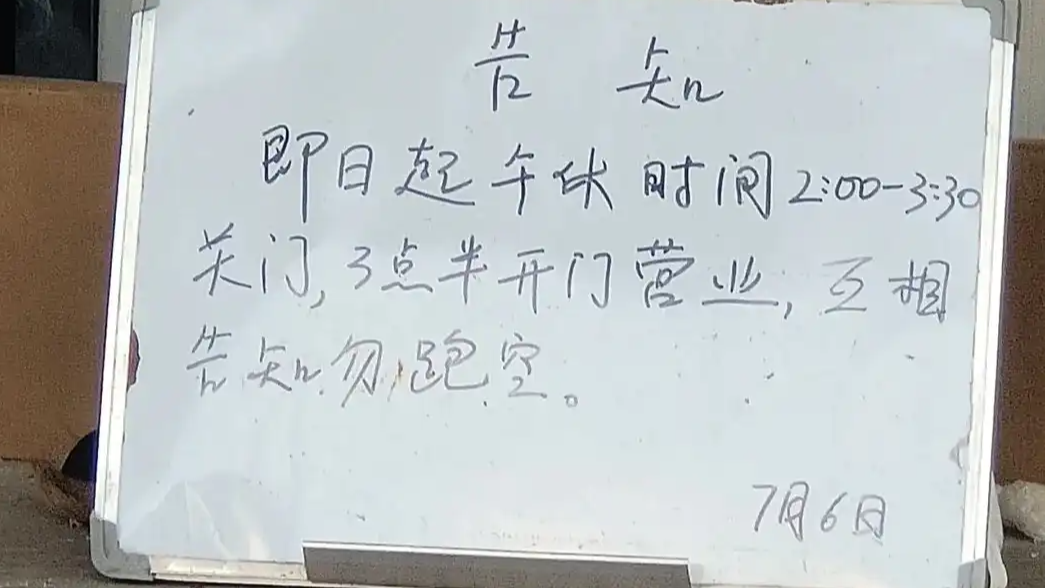 告知
即日起午休时间2:00-3:30
关门,3点半开门营业,互相
告知勿跑空。
7月6日